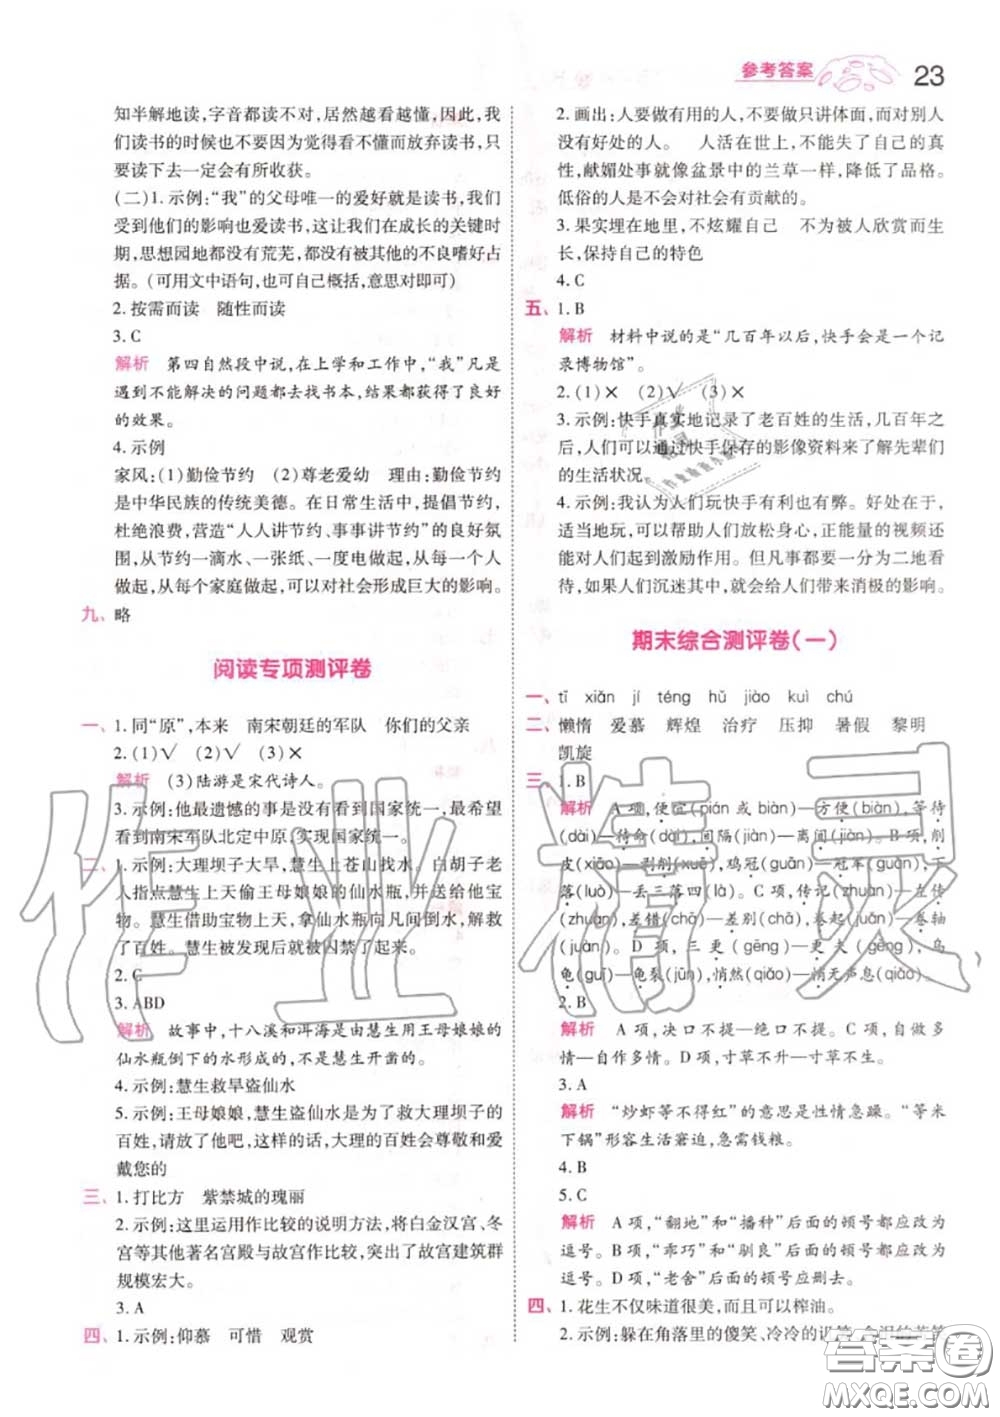 参考答案
23
知半解地读,字音都读不对,居然越看越懂,因此,我
们读书的时候也不要因为觉得看不懂而放弃读书,只
要读下去一定会有所收获。
(二)1.示例:“我”的父母唯一的爱好就是读书,我们
受到他们的影响也爱读书,这让我们在成长的关键时
期,思想园地都没有荒芜,都没有被其他的不良嗜好占
据。(可用文中语句,也可自己概括,意思对即可)
2.按需而读 随性而读
3.C
解析 第四自然段中说,在上学和工作中,“我”凡是
遇到不能解决的问题都去找书本,结果都获得了良好
的效果。
4.示例
家风:(1)勤俭节约 (2)尊老爱幼 理由:勤俭节约
是中华民族的传统美德。在日常生活中,提倡节约,
杜绝浪费,营造“人人讲节约、事事讲节约”的良好氛
围,从节约一滴水、一张纸、一度电做起,从每一个人
做起,从每个家庭做起,可以对社会形成巨大的影响。
九、略
阅读专项测评卷
一、1.同“原”,本来 南宋朝廷的军队 你们的父亲
2.(1)√ (2)√ (3)×
解析 (3)陆游是宋代诗人。
3.示例:他最遗憾的事是没有看到国家统一,希望
看到南宋军队北定中原,实现国家统一。
二、1.示例:大理坝子大旱,慧生上苍山找水。白胡子老
人指点慧生上天偷王母娘娘的仙水瓶,并送给他宝
物。慧生借助宝物上天,拿仙水瓶向凡间倒水,解救
了百姓。慧生被发现后就被囚禁了起来。
2.C
3.ABD
解析 故事中,十八溪和洱海是由慧生用王母娘娘的
仙水瓶倒下的水形成的,不是慧生开凿的。
4.示例:慧生救旱盗仙水
5.示例:王母娘娘,慧生盗仙水是为了救大理坝子的
百姓,请放了他吧,这样的话,大理的百姓会尊敬和爱
戴您的
三、1.打比方 紫禁城的瑰丽
2.示例:这里运用作比较的说明方法,将白金汉宫、冬
宫等其他著名宫殿与故宫作比较,突出了故宫建筑群
规模宏大。
3.A
四、1.示例:仰慕 可惜 观赏
2.画出:人要做有用的人,不要做只讲体面,而对别人
没有好处的人。 人活在世上,不能失去了自己的真
性,献媚处事就像盆景中的兰草一样,降低了品格。
低俗的人是不会对社会有贡献的。
3.果实埋在地里,不炫耀自己 不为被人欣赏而生
长,保持自己的特色
4.C
五、1.B
解析 材料中说的是“几百年以后,快手会是一个记
录博物馆”。
2.(1)× (2)√ (3)×
3.示例:快手真实地记录了老百姓的生活,几百年之
后,人们可以通过快手保存的影像资料来了解先辈们
的生活状况。
4.示例:我认为人们玩快手有利也有弊。好处在于,
适当地玩,可以帮助人们放松身心,正能量的视频还
能对人们起到激励作用。但凡事都要一分为二地看
待,如果人们沉迷其中,就会给人们带来消极的影响。
期末综合测评卷(一)
一、tī xiǎn jí téng hǔ jiào kuì chú
二、懒惰 爱慕 辉煌 治疗 压抑 暑假 黎明
凯旋
三、1.B
解析 A项,便宜(pián或biàn)—方便(biàn),等待
(dài)—待命(dài),间隔(jiàn)—离间(jiàn)。B项,削
皮(xiāo)—剥削(xuē),鸡冠(guān)—冠军(guàn),下
落(luò)—丢三落四(là)。C项,传记(zhuàn)—左传
(zhuàn),差错(chā)—差别(chā),卷起(juǎn)—卷轴
(juàn)。D项,三更(gēng)—更夫(gēng),乌
龟(guī)—龟裂(jūn),悄然(qiǎo)—悄无声息(qiǎo)。
2.B
解析 A项,决口不提—绝口不提。C项,自做多
情—自作多情。D项,寸草不升—寸草不生。
3.A
解析 “炒虾等不得红”的意思是性情急躁。“等米
下锅”形容生活窘迫,急需钱粮。
4.B
5.C
解析 A项,“翻地”和“播种”后面的顿号都应改为
逗号。B项,“乖巧”和“驯良”后面的顿号都应改为
逗号。D项,“老舍”后面的顿号应删去。
四、1.花生不仅味道很美,而且可以榨油。
2.示例:躲在角落里的傻笑、冷冷的
作业精灵
答案圈
MXQE.COM